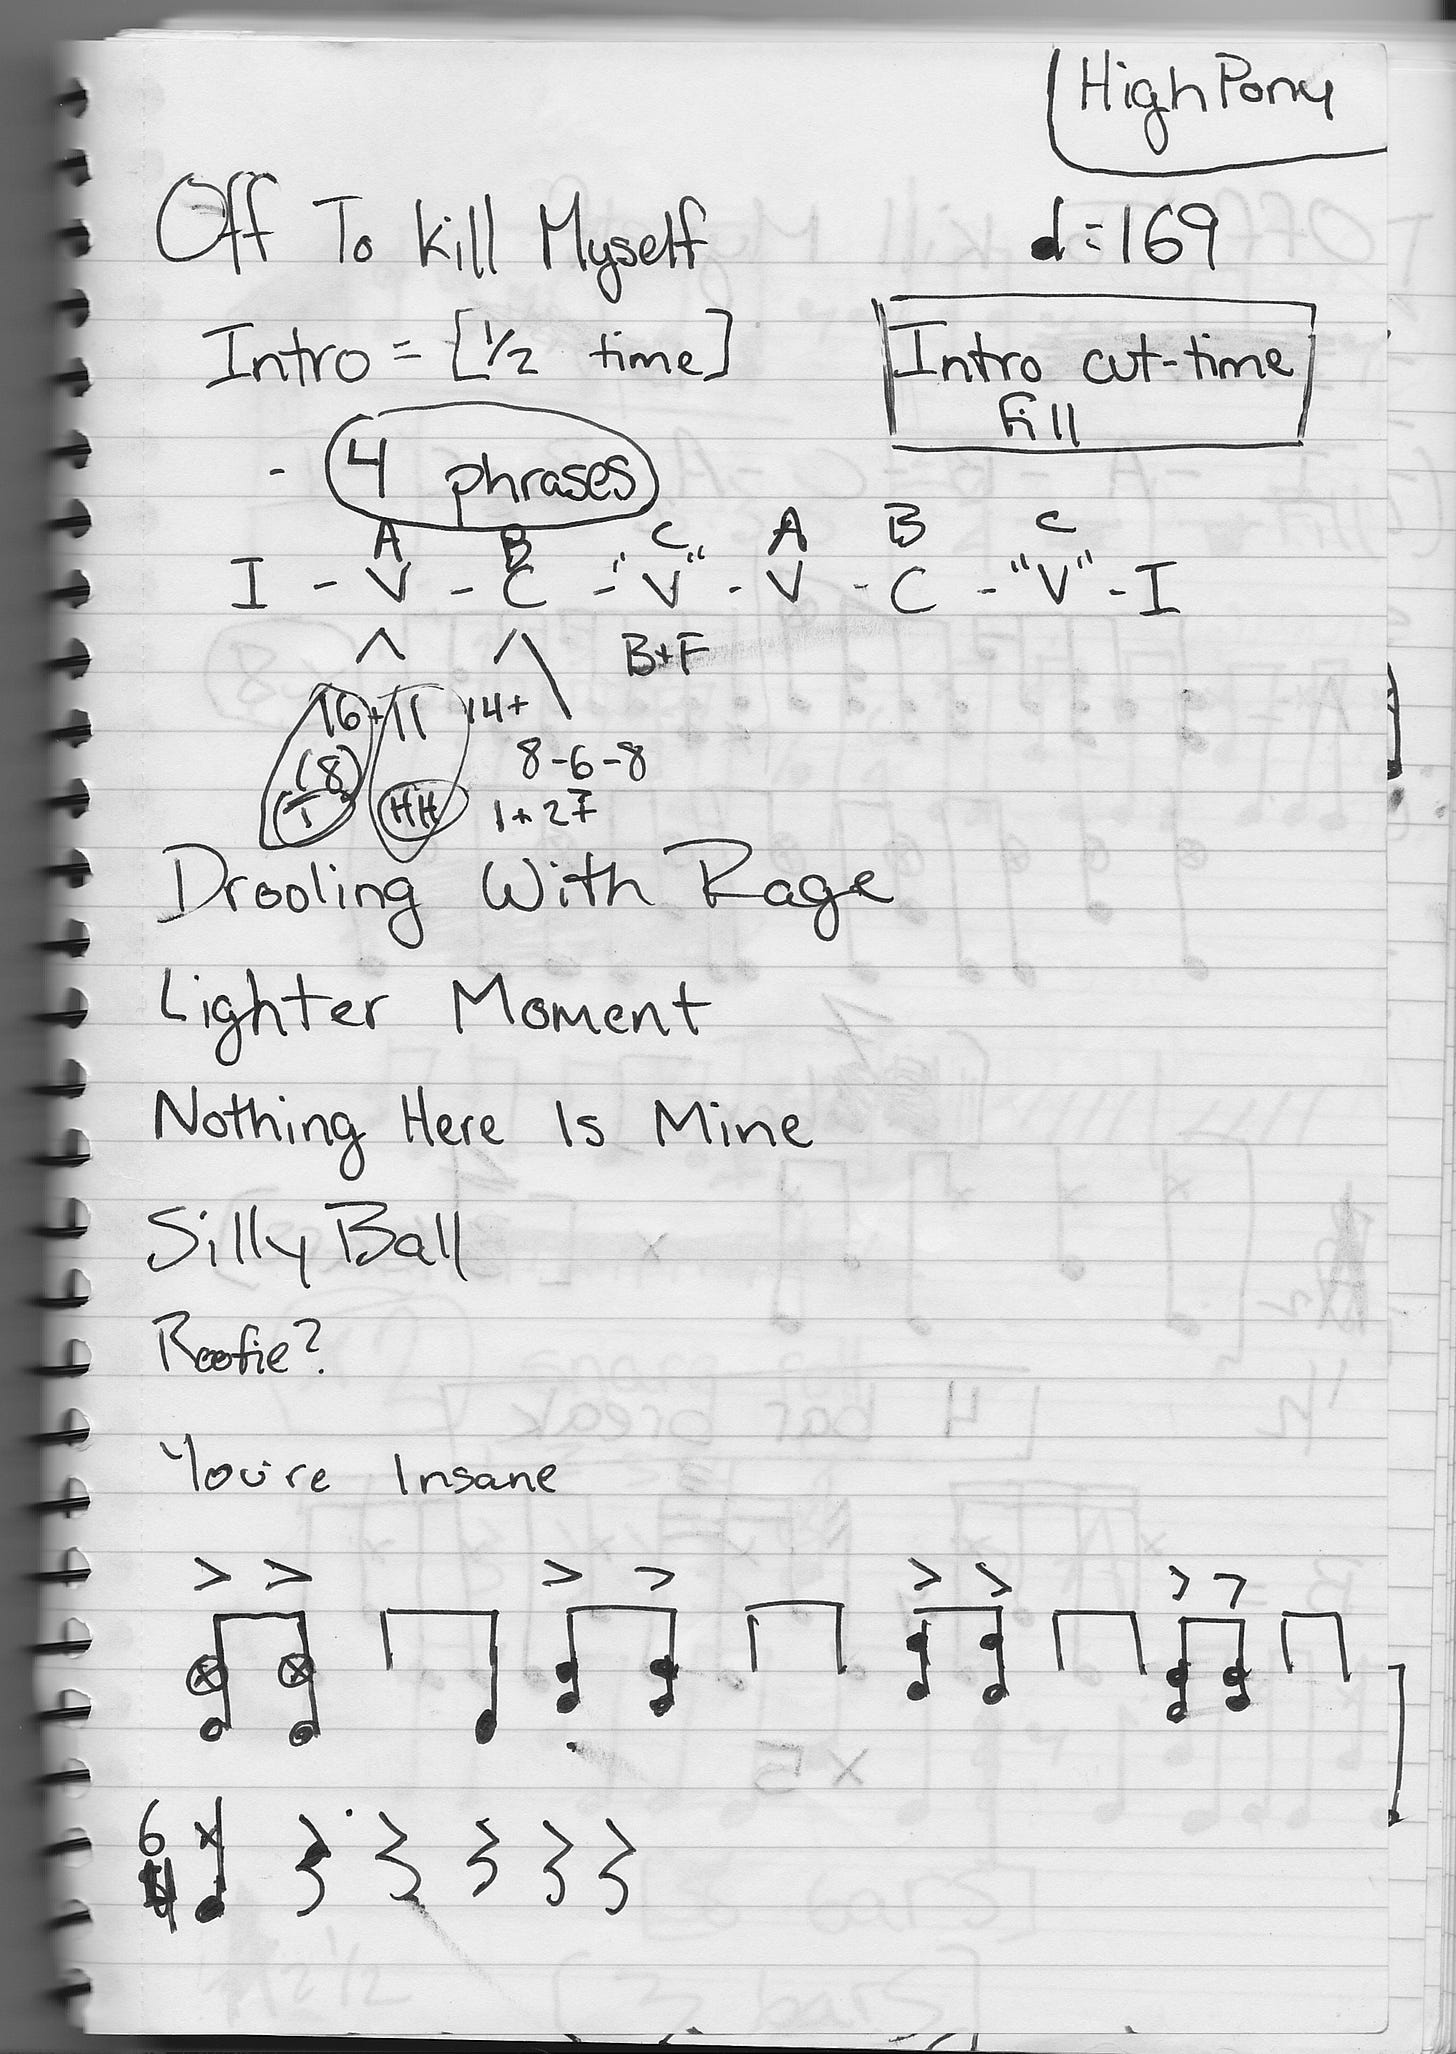 High Pony
Off To Kill Myself ♩=169
Intro = [1/2 time]
Intro cut-time
fill
- 4 phrases
A B C A B C
I - V - C - "V" - V - C - "V" - I
B+F
16 + 11 14+
(8) 8-6-8
T HH 1 + 27
Drooling With Rage
Lighter Moment
Nothing Here Is Mine
Silly Ball
Roofie?
You're Insane
> > > > > > > >
6
4